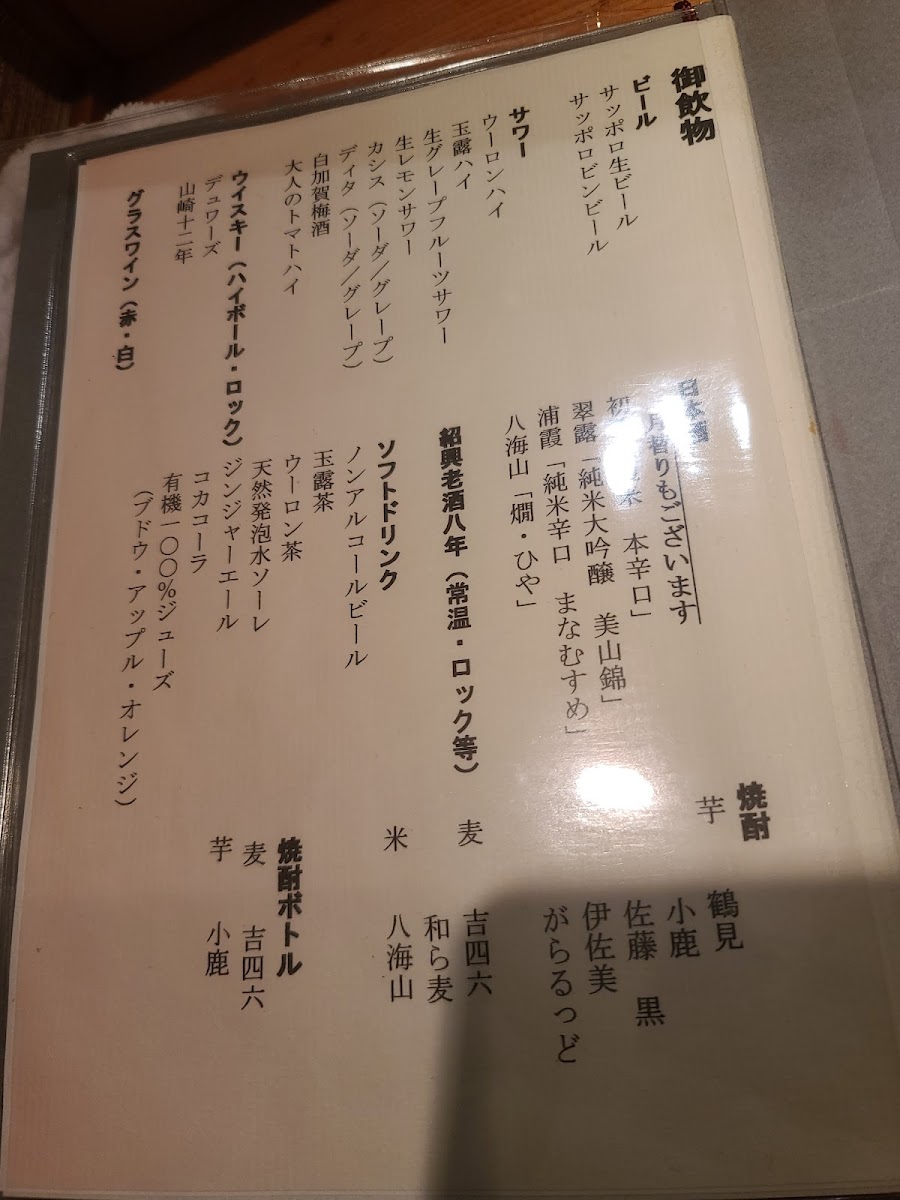 御飲物
ビール
サッポロ生ビール
サッポロビンビール
サワー
ウーロンハイ
玉露ハイ
生グレープフルーツサワー
生レモンサワー
カシス（ソーダ／グレープ）
ディタ（ソーダ／グレープ）
白加賀梅酒
大人のトマトハイ
ウイスキー（ハイボール・ロック）
デュワーズ
山崎十二年
グラスワイン（赤・白）
日本酒
月替りもございます
本辛口」
翠露「純米大吟醸　美山錦」
浦霞「純米辛口　まなむすめ」
八海山「燗・ひや」
紹興老酒八年（常温・ロック等）
ソフトドリンク
ノンアルコールビール
玉露茶
ウーロン茶
天然発泡水ソーレ
ジンジャーエール
コカコーラ
有機一〇〇％ジューズ
（ブドウ・アップル・オレンジ）
焼酎
芋　鶴見
小鹿
佐藤　黒
伊佐美
がらるっど
麦　吉四六
和ら麦
米　八海山
焼酎ボトル
麦　吉四六
芋　小鹿